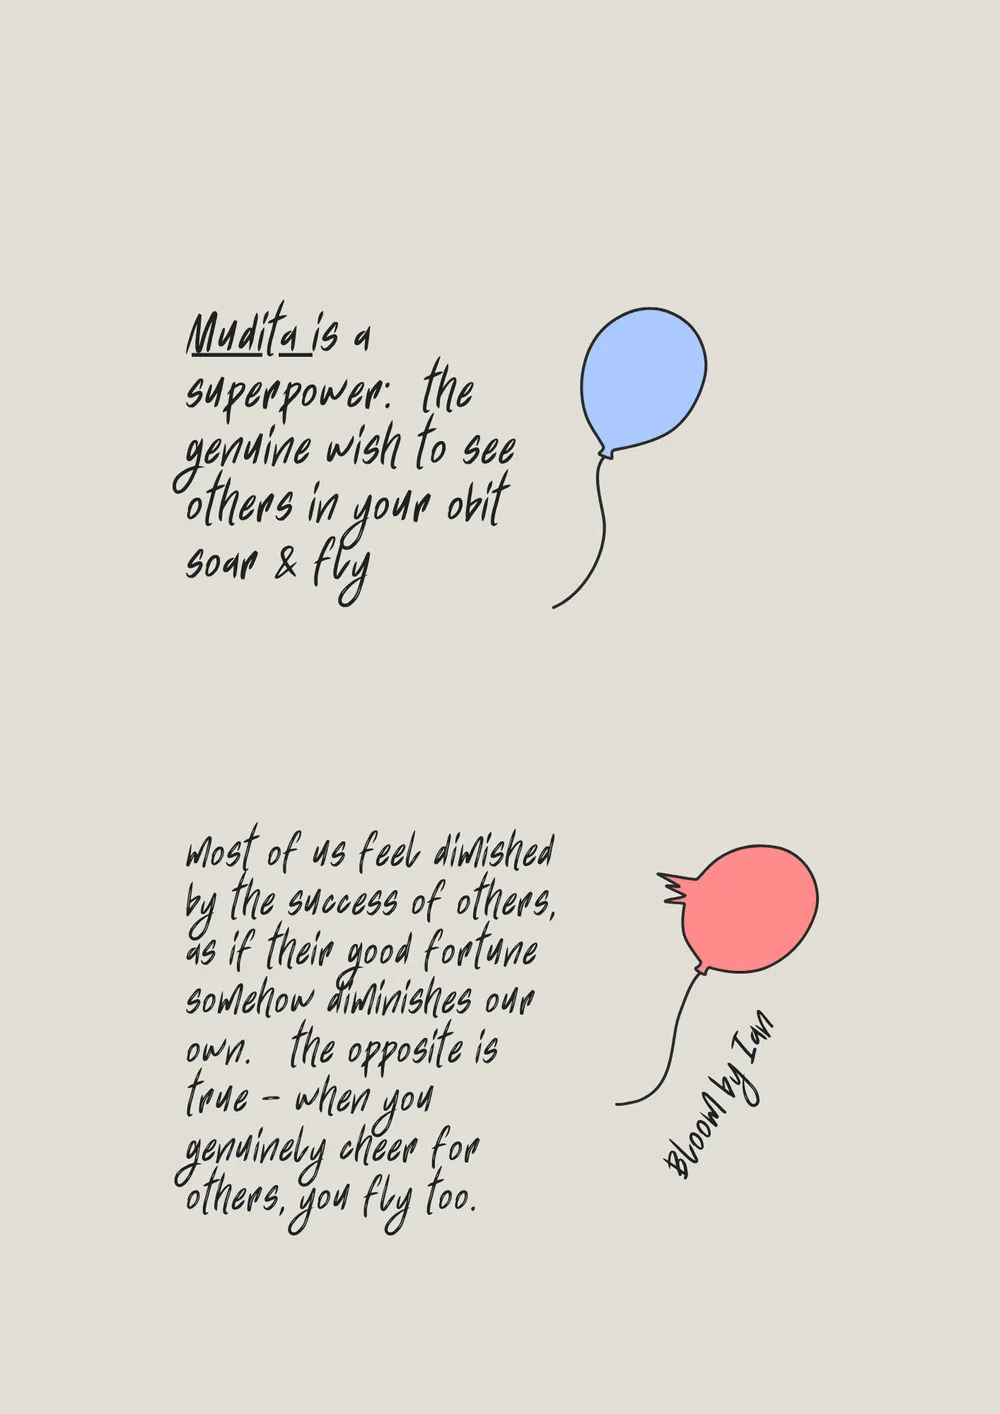 Mudita is a
superpower: the
genuine wish to see
others in your obit
soar & fly
most of us feel dimished
by the success of others,
as if their good fortune
somehow diminishes our
own. the opposite is
true - when you
genuinely cheer for
others, you fly too.
Bloom by Ian